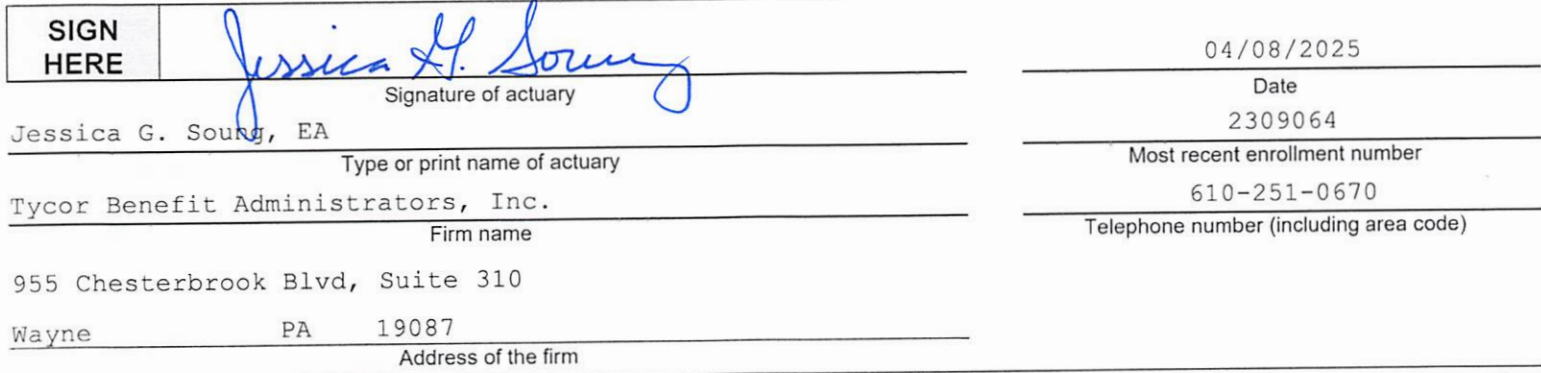 SIGN HERE
Jessica G. Soung
04/08/2025
Signature of actuary
Date
Jessica G. Soung, EA
2309064
Type or print name of actuary
Most recent enrollment number
Tycor Benefit Administrators, Inc.
610-251-0670
Firm name
Telephone number (including area code)
955 Chesterbrook Blvd, Suite 310
Wayne PA 19087
Address of the firm